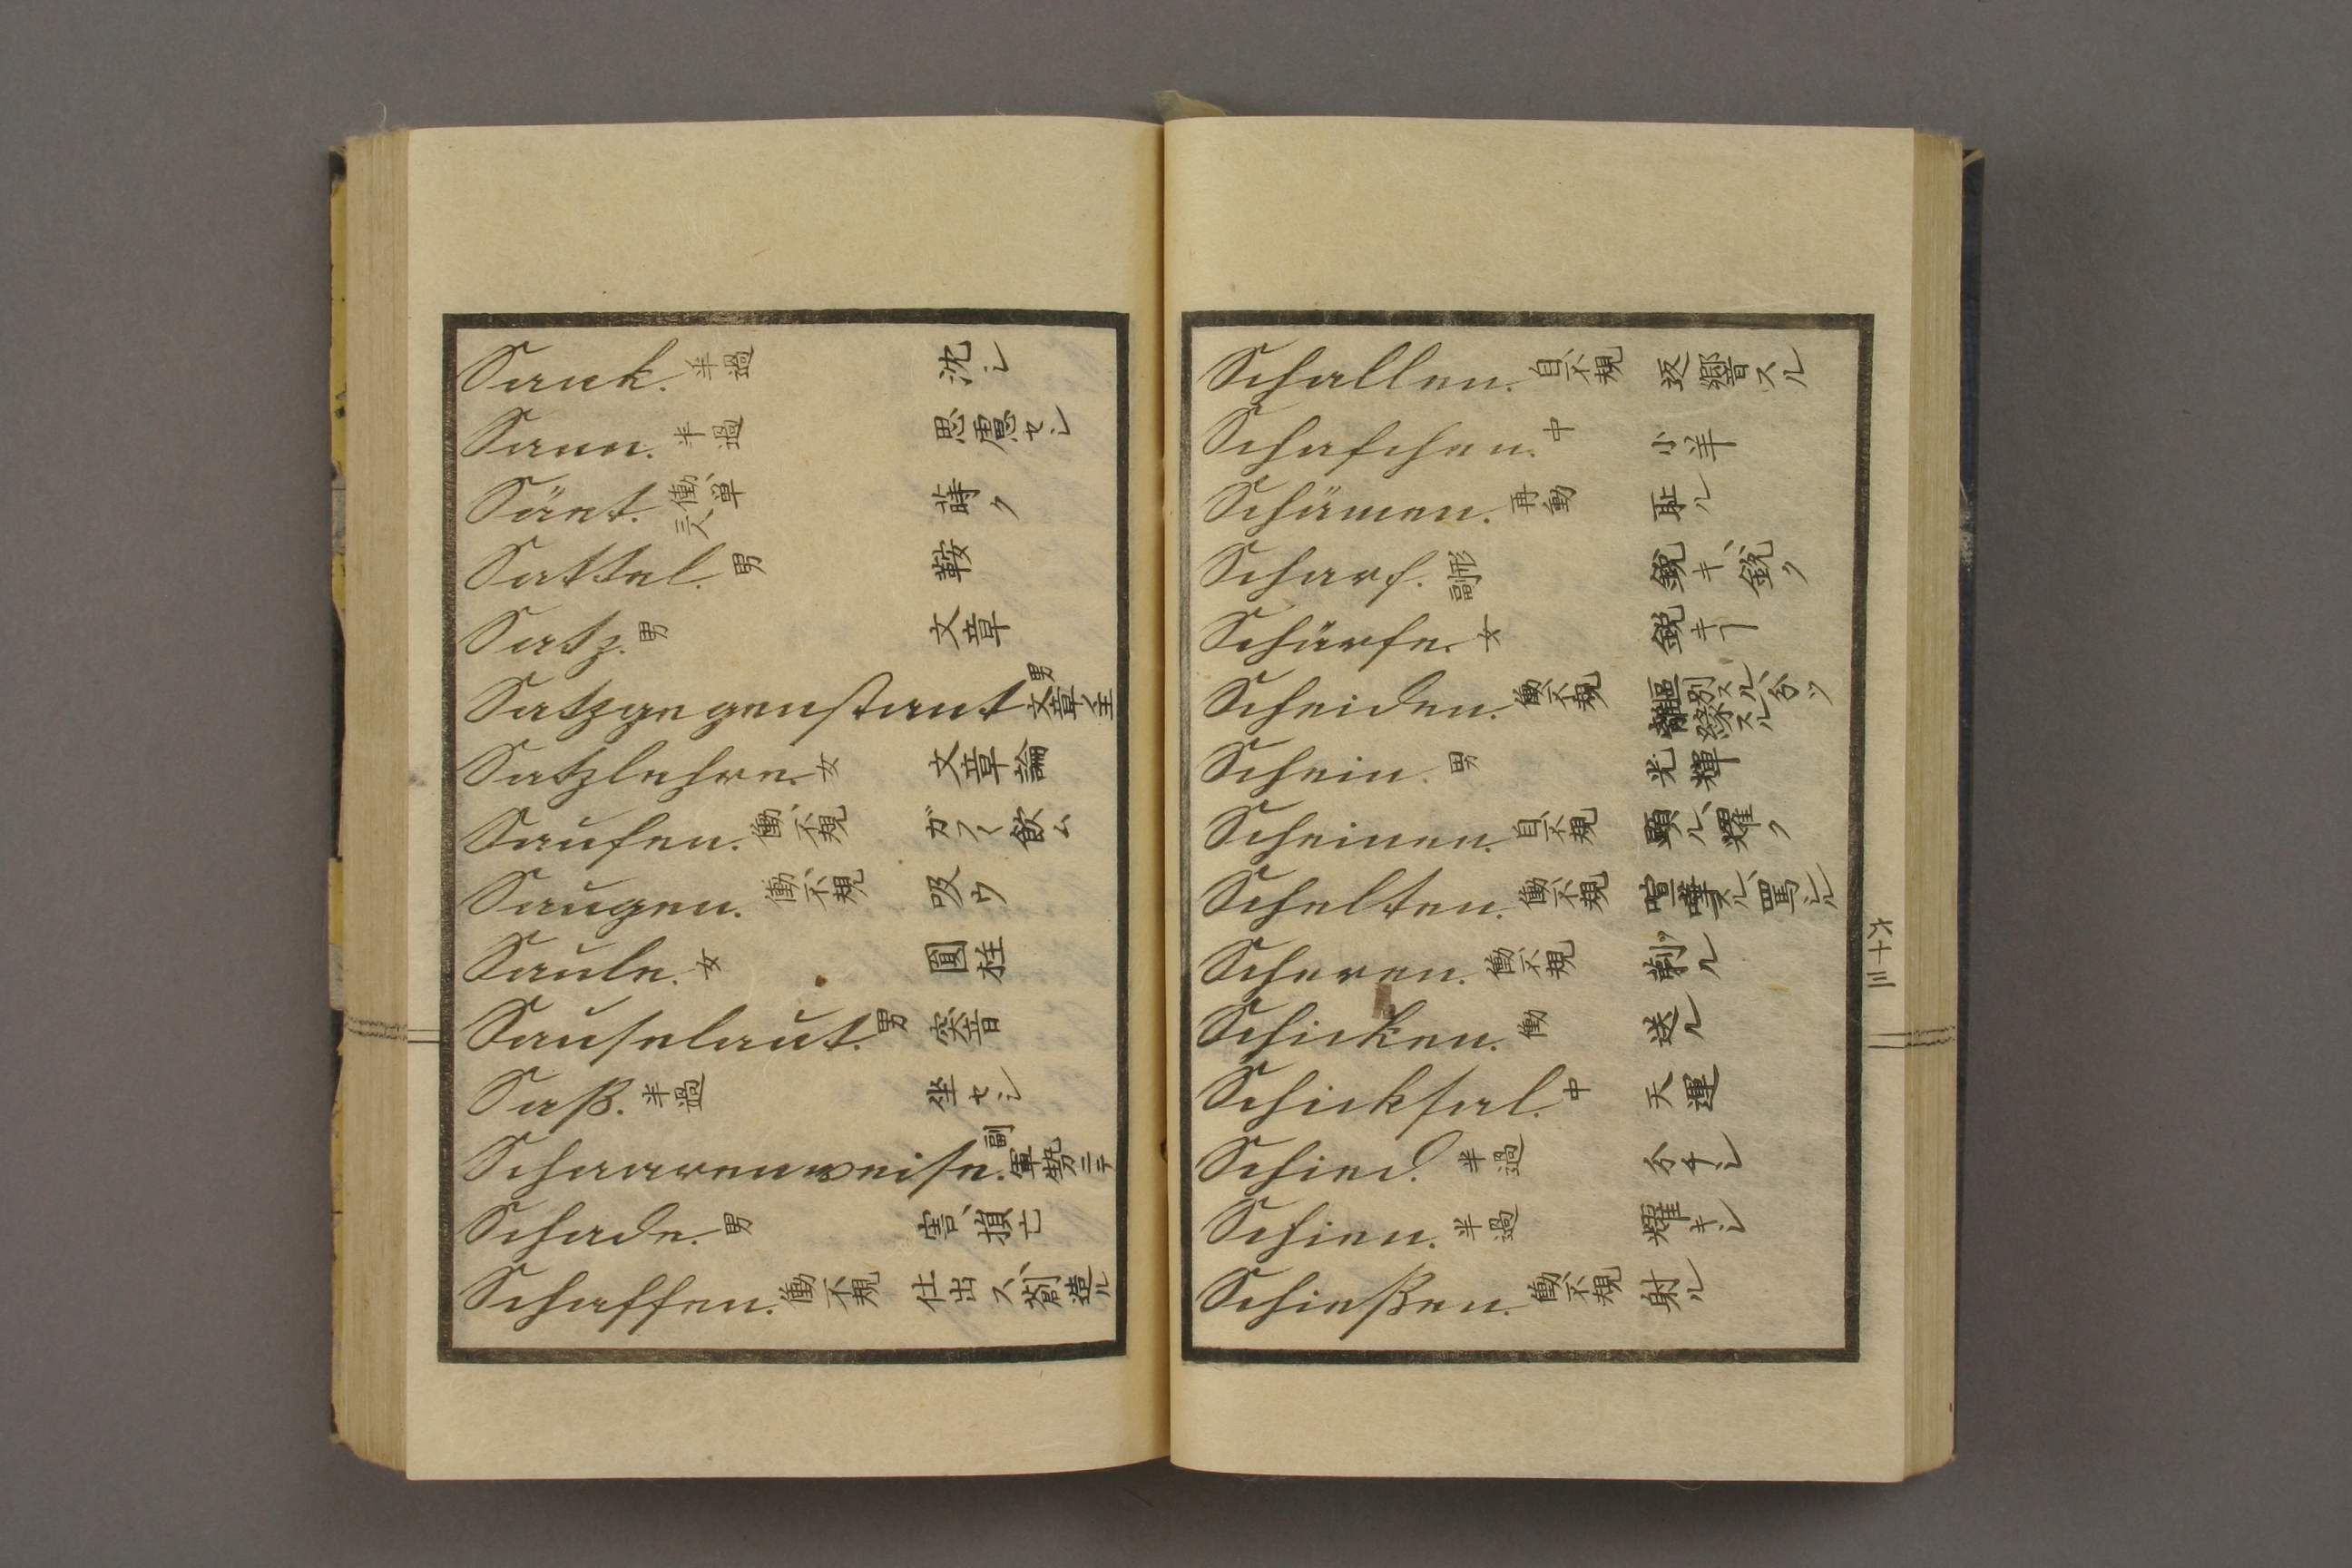 Sank. 半過 沈シ
Sann. 半過 思慮セシ
Säet. 働、単三人 蒔ク
Sattel. 男 鞍
Satz. 男 文章
Satzgegenstant 男 文章主
Satzlehre. 女 文章論
Saufen. 働、不規 ガブ〱飲ム
Saugen. 働、不規 吸ウ
Saule. 女 圓柱
Sauselaut. 男 突音
Saß. 半過 坐セシ
Schaarenweise. 副 軍勢ニテ
Schade. 男 害、損亡
Schaffen. 働、不規 仕出ス、創造ル
Schallen. 自、不規 返響スル
Schafchen. 中 小羊
Schämen. 再働 耻ル
Scharf. 形副 鋭キ、鋭ク
Schärfe. 女 鋭キヿ
Scheiden. 働、不規 區別スル、分ツ離縁スル
Schein. 男 光輝
Scheinen. 自、不規 顕ル、耀ク
Schelten. 働、不規 喧嘩スル、罵シル
Scheren. 働、不規 剃ル
Schicken. 働 送ル
Schicksal. 中 天運
Schied. 半過 分チシ
Schien. 半過 耀キシ
Schießen. 働、不規 射ル
六十三